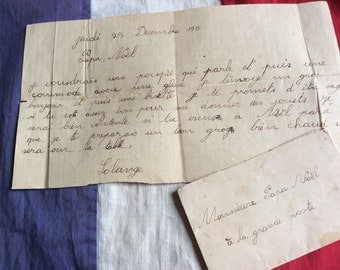 jeudi 23 Decembre 19
Papa Noël
je voudrais une poupée qui parle et puis une
commode avec une glace je t'envoye un gros
et puis une je te promets d'être sage
si tu es assez bon pour me donner des jouets je
serai bien contente si tu viens a Nöel parce
que je te preparais un bon grog bien chaud il
sera sur la table.
Solange
Monsieure Papa Nöel
à la grande porte